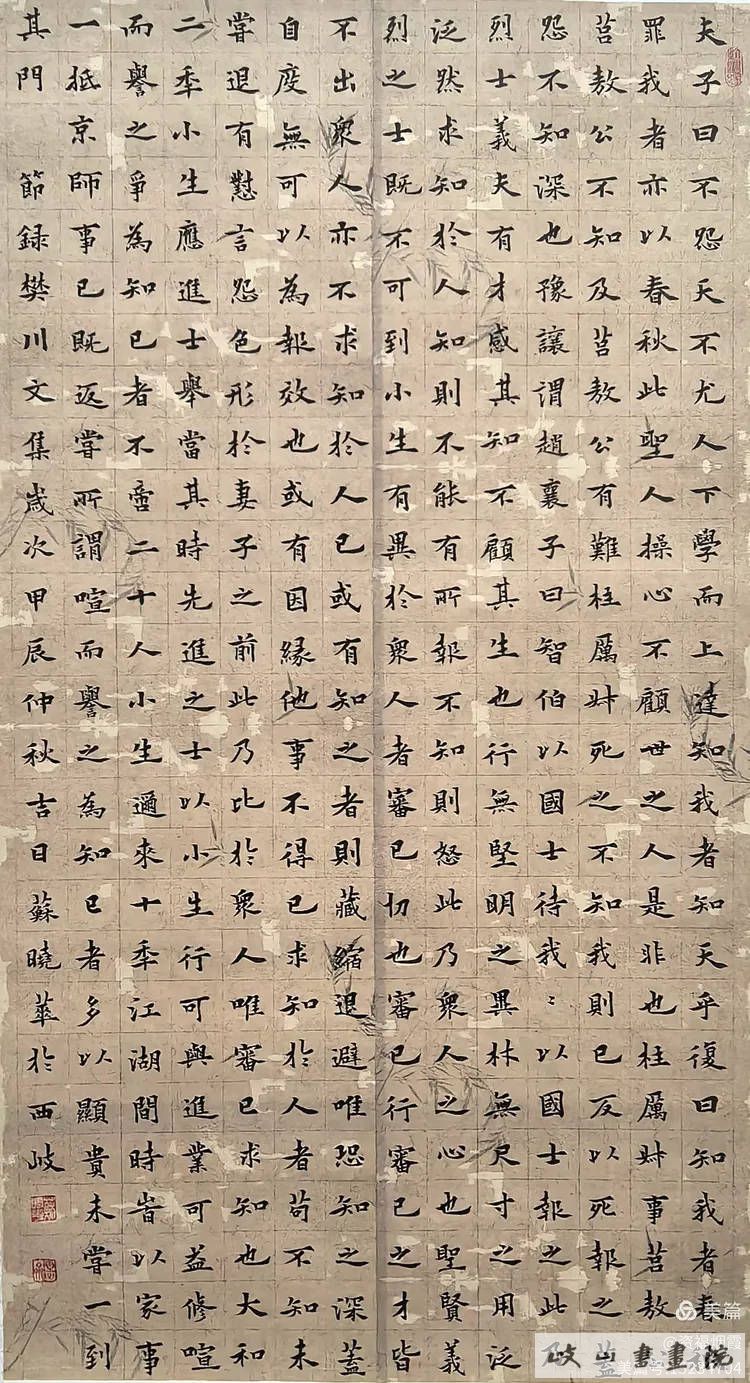 夫子曰不怨天不尤人下學而上達知我者知天乎復曰知我者春
罪我者亦以春秋此聖人操心不顧世之人是非也柱厲叔事莒敖
莒敖公不知及莒敖公有難柱厲叔死之不知我則已反以死報之蓋
怨不知深也豫讓謂趙襄子曰智伯以國士待我〻以國士報之此
烈士義夫有才感其知不顧其生也行無堅明之異材無尺寸之用泛
泛然求知於人知則不能有所報不知則怒此乃衆人之心也聖賢義
烈之士既不可到小生有異於衆人者審已切也審已行審已之才皆
不出衆人亦不求知於人已或有知之者則藏縮退避唯恐知之深蓋
自度無可以為報效也或有因緣他事不得已求知於人者苟不知未
嘗退有懟言怨色形於妻子之前此乃比於衆人唯審已求知也大和
二秊小生應進士舉當其時先進之士以小生行可與進業可益修喧
而譽之爭為知已者不啻二十人小生邇來十秊江湖間時時以家事
一抵京師事已既返嘗所謂喧而譽之為知已者多以顯貴未嘗一到
其門 節録樊川文集歲次甲辰仲秋吉日蘇曉華於西岐
美篇
岐山書畫院